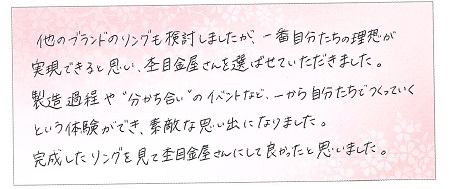 他のブランドのリングも検討しましたが、一番自分たちの理想が
実現できると思い、杢目金屋さんを選ばせていただきました。
製造過程や"分かち合い"のイベントなど、一から自分たちでつくっていく
という体験ができ、素敵な思い出になりました。
完成したリングを見て杢目金屋さんにして良かったと思いました。